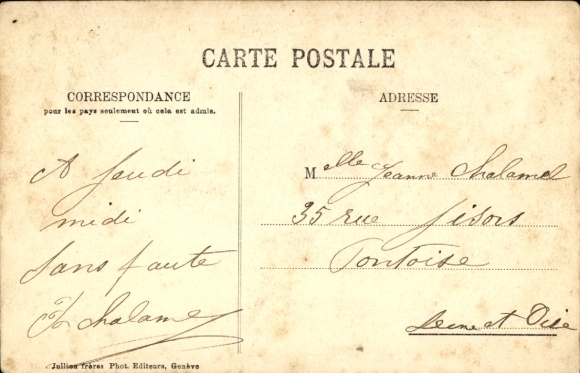 CARTE POSTALE
CORRESPONDANCE
pour les pays seulement où cela est admis.
A Jeudi
midi
sans faute
Chalamel
Jullien frères Phot. Editeurs, Genève
ADRESSE
Melle Jeanne Chalamel
35 rue Gisors
Pontoise
Seine et Oise